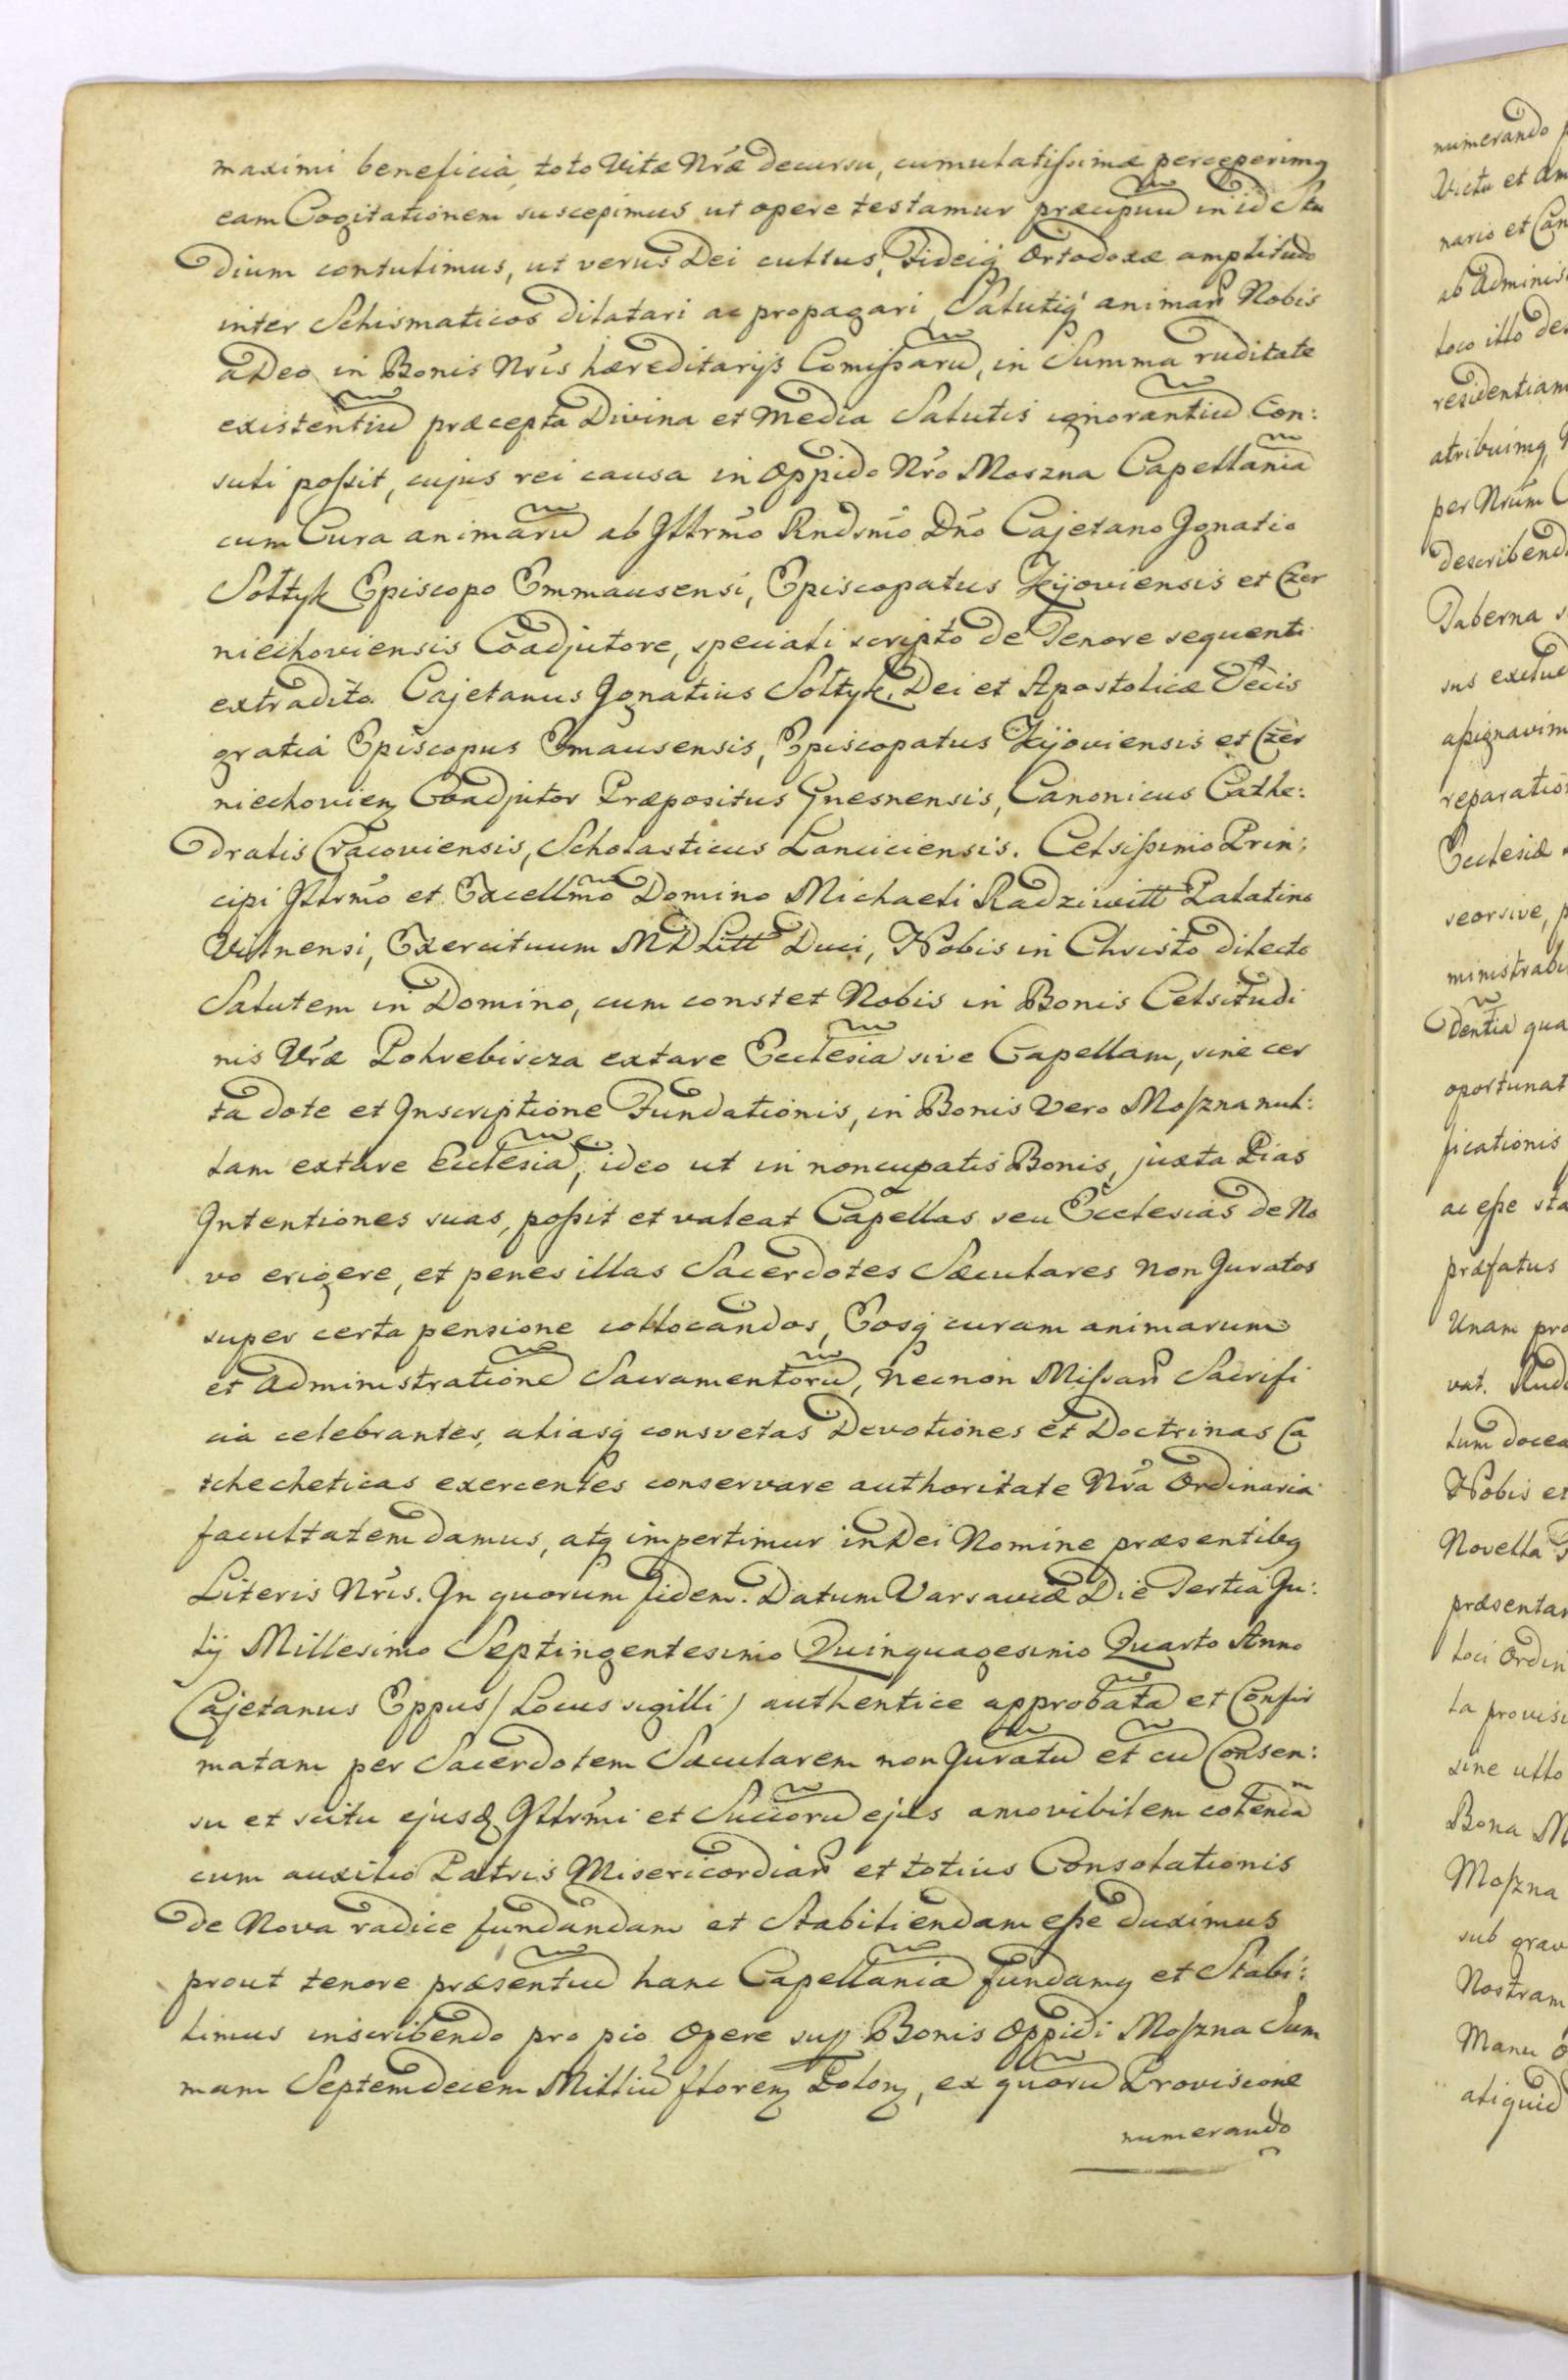 maximi beneficia toto Vitæ Nræ decursu, cumulatissimæ perceperimq
eam Cogitationem suscepimus ut opere testamur præcipuu in id Stu
dium contulimus, ut verus Dei cultus, Fideiq Ortodoxæ amplitudo
inter Schismaticos dilatari ac propagari, Salutiq animar Nobis
a Deo in Bonis Nris hæreditarijs Comissaru, in Summa ruditate
existentiu præcepta Divina et Media Salutis ignorantiu Con:
suli possit, cujus rei causa in Oppido Nro Moszna Capellania
cum Cura animaru ab Illrmo Rndsmo Dno Cajetano Ignatio
Sołtyk Episcopo Emmausensi, Episcopatus Kijoviensis et Czer
niechoviensis Coadjutore, speciali scripto de Tenore sequenti
extradito. Cajetanus Ignatius Sołtyk, Dei et Apostolicæ Sedis
gratia Episcopus Emausensis, Episcopatus Kijoviensis et Czer
niechovien Coadjutor Præpositus Gnesnensis, Canonicus Cathe:
dralis Cracoviensis, Scholasticus Lanciciensis. Celsissimo Prin:
cipi Illrmo et Excellmo Domino Michaeli Radziwiłł Palatino
Vilnensi, Exercituum MDLitt Duci, Nobis in Christo dilecto
Salutem in Domino, cum constet Nobis in Bonis Celsitudi
nis Vræ Pohrebiszcza extare Ecclesia sive Capellam, sine cer
ta dote et Inscriptione Fundationis, in Bonis vero Moszna nul:
lam extare Ecclesia, ideo ut in noncupatis Bonis, juxta Pias
Intentiones suas, possit et valeat Capellas seu Ecclesias de No
vo erigere, et penes illas Sacerdotes Sæculares non Juratos
super certa pensione collocandos, Eosq curam animarum
et Administratione Sacramentoru, necnon Missar Sacrifi
cia celebrantes, aliasq consvetas Devotiones et Doctrinas Ca
thecheticas exercentes conservare authoritate Nra Ordinaria
facultatem damus, atq impertimur in Dei Nomine præsentibq
Literis Nris. In quorum fidem. Datum Varsaviæ Die Tertia Ju:
lij Millesimo Septingentesimo Quinquagesimo Quarto Anno
Cajetanus Eppus / Locus sigilli / authentice approbata et Confir
matam per Sacerdotem Sæcularem non Juratu et cu Consen:
su et scitu ejusq Illrmi et Succoru ejus amovibilem colenda
cum auxilio Patris Misericordiar et totius Consolationis
de Nova radice fundandam et Stabiliendam esse duximus
prout tenore præsentiu hanc Capellania fundamq et Stabi:
limus inscribendo pro pio Opere sup Bonis Oppidi Moszna Sum
mam Septemdecem Milliu floren Polon, ex quoru Provisione
numerando
numerando
Victu et Am
nario et Can
ab Adminis
loco illo de
residentiam
atribuimq
per Nrum
describend
Taberna s
sus exclu
assignavim
reparatio
Ecclesiæ
seorsive, p
ministrabi
dentia qua
oportunat
ficationis
ac esse sta
præfatus
Unam pro
vat.
lum docea
Nobis et
Novella
præsentan
loci Ordin
la provisi
sine ullo
Bona M
Moszna
sub grav
Nostram
Manu
aliquid